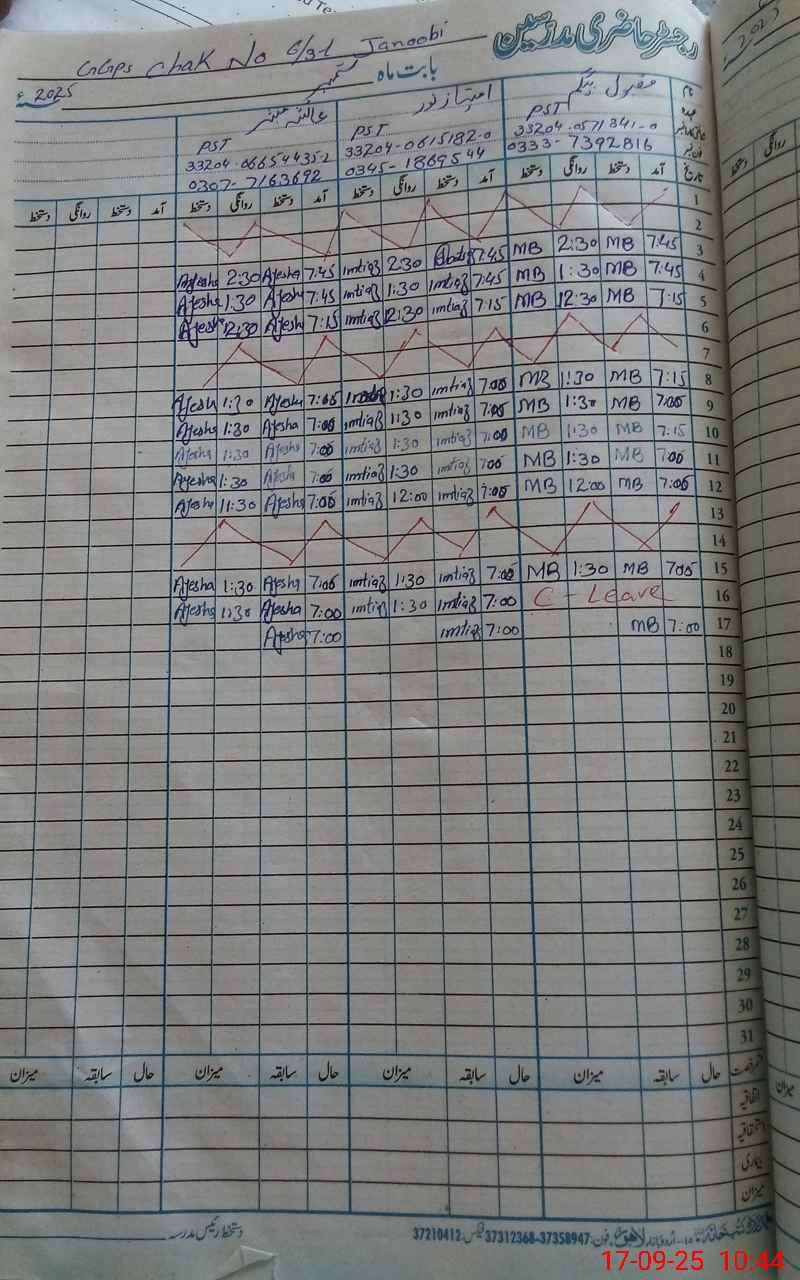 GGPS Chak No 6/3-L Janoobi
رجسٹر حاضری مدرسین
بابت ماہ ستمبر 2025ء
نام مقبول بیگم امتیاز نور
PST PST PST
33204-0571341-0 33204-0615182-0 33204-0665443-2
0333-7392816 0345-1869544 0307-7163692
تاریخ آمد دستخط روانگی دستخط آمد دستخط روانگی دستخط آمد دستخط روانگی دستخط آمد دستخط روانگی دستخط
1
2
3 7:45 MB 2:30 MB 7:45 2:30 imtiaz 7:45 Ajesha 2:30 Ajesha
4 7:45 MB 1:30 MB 7:45 imtiaz 1:30 imtiaz 7:45 Ajesha 1:30 Ajesha
5 7:15 MB 12:30 MB 7:15 imtiaz 12:30 imtiaz 7:15 Ajesha 12:30 Ajesha
6
7
8 7:15 MB 1:30 MB 7:00 imtiaz 1:30 imtiaz 7:05 Ajesha 1:30 Ajesha
9 7:00 MB 1:30 MB 7:05 imtiaz 1:30 imtiaz 7:00 Ajesha 1:30 Ajesha
10 7:15 MB 1:30 MB 7:00 imtiaz 1:30 imtiaz 7:00 Ajesha 1:30 Ajesha
11 7:00 MB 1:30 MB 7:00 imtiaz 1:30 imtiaz 7:00 Ajesha 1:30 Ajesha
12 7:05 MB 12:00 MB 7:05 imtiaz 12:00 imtiaz 7:05 Ajesha 11:30 Ajesha
13
14
15 7:05 MB 1:30 MB 7:00 imtiaz 1:30 imtiaz 7:05 Ajesha 1:30 Ajesha
16 C-Leave 7:00 imtiaz 1:30 imtiaz 7:00 Ajesha 1:30 Ajesha
17 7:00 MB 7:00 imtiaz 7:00 Ajesha
18
19
20
21
22
23
24
25
26
27
28
29
30
31
حال سابقہ میزان حال سابقہ میزان حال سابقہ میزان حال سابقہ میزان
اتفاقیہ
بیماری
میزان
فون: 37358947-37312368 فیکس: 37210412
دستخط رئیس مدرسہ
17-09-25 10:44